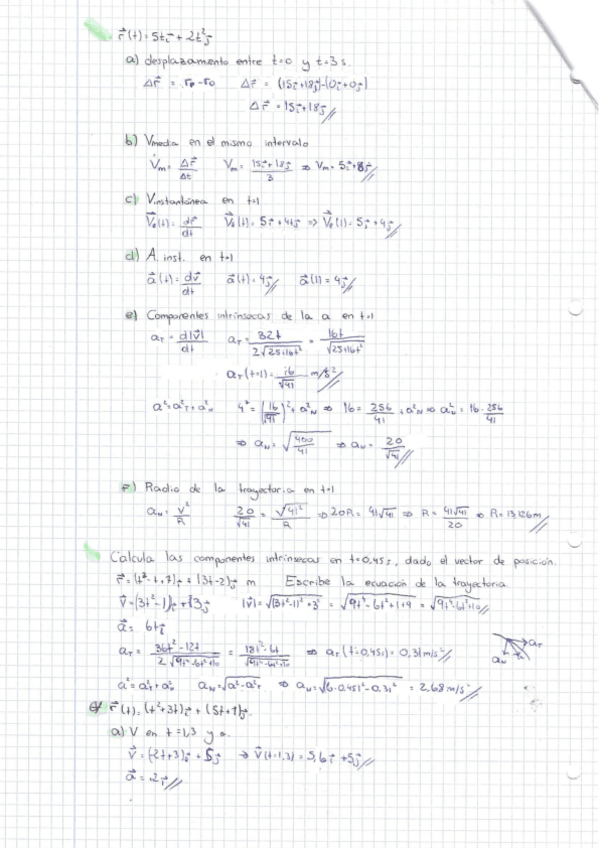 r⃗(t) = 5t i⃗ + 2t² j⃗
a) desplazamiento entre t=0 y t=3s.
Δr⃗ = r_F - r_0   Δr⃗ = (15i⃗+18j⃗)-(0i⃗+0j⃗)
Δr⃗ = 15i⃗+18j⃗
b) Vmedia en el mismo intervalo
V⃗m = Δr⃗/Δt   Vm = (15i⃗+18j⃗)/3 ⇒ Vm = 5i⃗+6j⃗
c) Vinstantánea en t=1
V⃗(t) = dr⃗/dt   V⃗(t) = 5i⃗ + 4tj⃗ ⇒ V⃗(1) = 5i⃗+4j⃗
d) A. inst. en t=1
a⃗(t) = dv⃗/dt   a⃗(t) = 4j⃗   a⃗(1) = 4j⃗
e) Componentes intrínsecas de la a en t=1
a_T = d|v⃗|/dt   a_T = 32t/2√25+16t² = 16t/√25+16t²
a_T(t=1) = 16/√41 m/s²
a² = a²_T + a²_N   4² = (16/√41)² + a²_N ⇒ 16 = 256/41 + a²_N ⇒ a²_N = 16 - 256/41
⇒ a_N = √400/41 ⇒ a_N = 20/√41
F) Radio de la trayectoria en t=1
a_N = V²/R   20/√41 = √41²/R ⇒ 20R = 41√41 ⇒ R = 41√41/20 ⇒ R = 13,126m
Calcula las componentes intrínsecas en t=0,45s, dado el vector de posición.
r⃗ = (t³-t+7)i⃗ + (3t-2)j⃗ m   Escribe la ecuación de la trayectoria
v⃗ = (3t²-1)i⃗ + 3j⃗   |v⃗| = √(3t²-1)²+3² = √9t⁴-6t²+1+9 = √9t⁴-6t²+10
a⃗ = 6ti⃗
a_T = 36t³-12t/2√9t⁴-6t²+10 = 18t³-6t/√9t⁴-6t²+10 ⇒ a_T(t=0,45s) = 0,31m/s²
a_T
a_N
a² = a²_T + a²_N   a_N = √a²-a²_T ⇒ a_N = √(6·0,45)²-0,3² = 2,68m/s²
r⃗(t) = (t²+3t)i⃗ + (5t+1)j⃗.
a) V en t=1,3 y a.
v⃗ = (2t+3)i⃗ + 5j⃗ → v⃗(t=1,3) = 5,6i⃗ + 5j⃗
a⃗ = 2i⃗